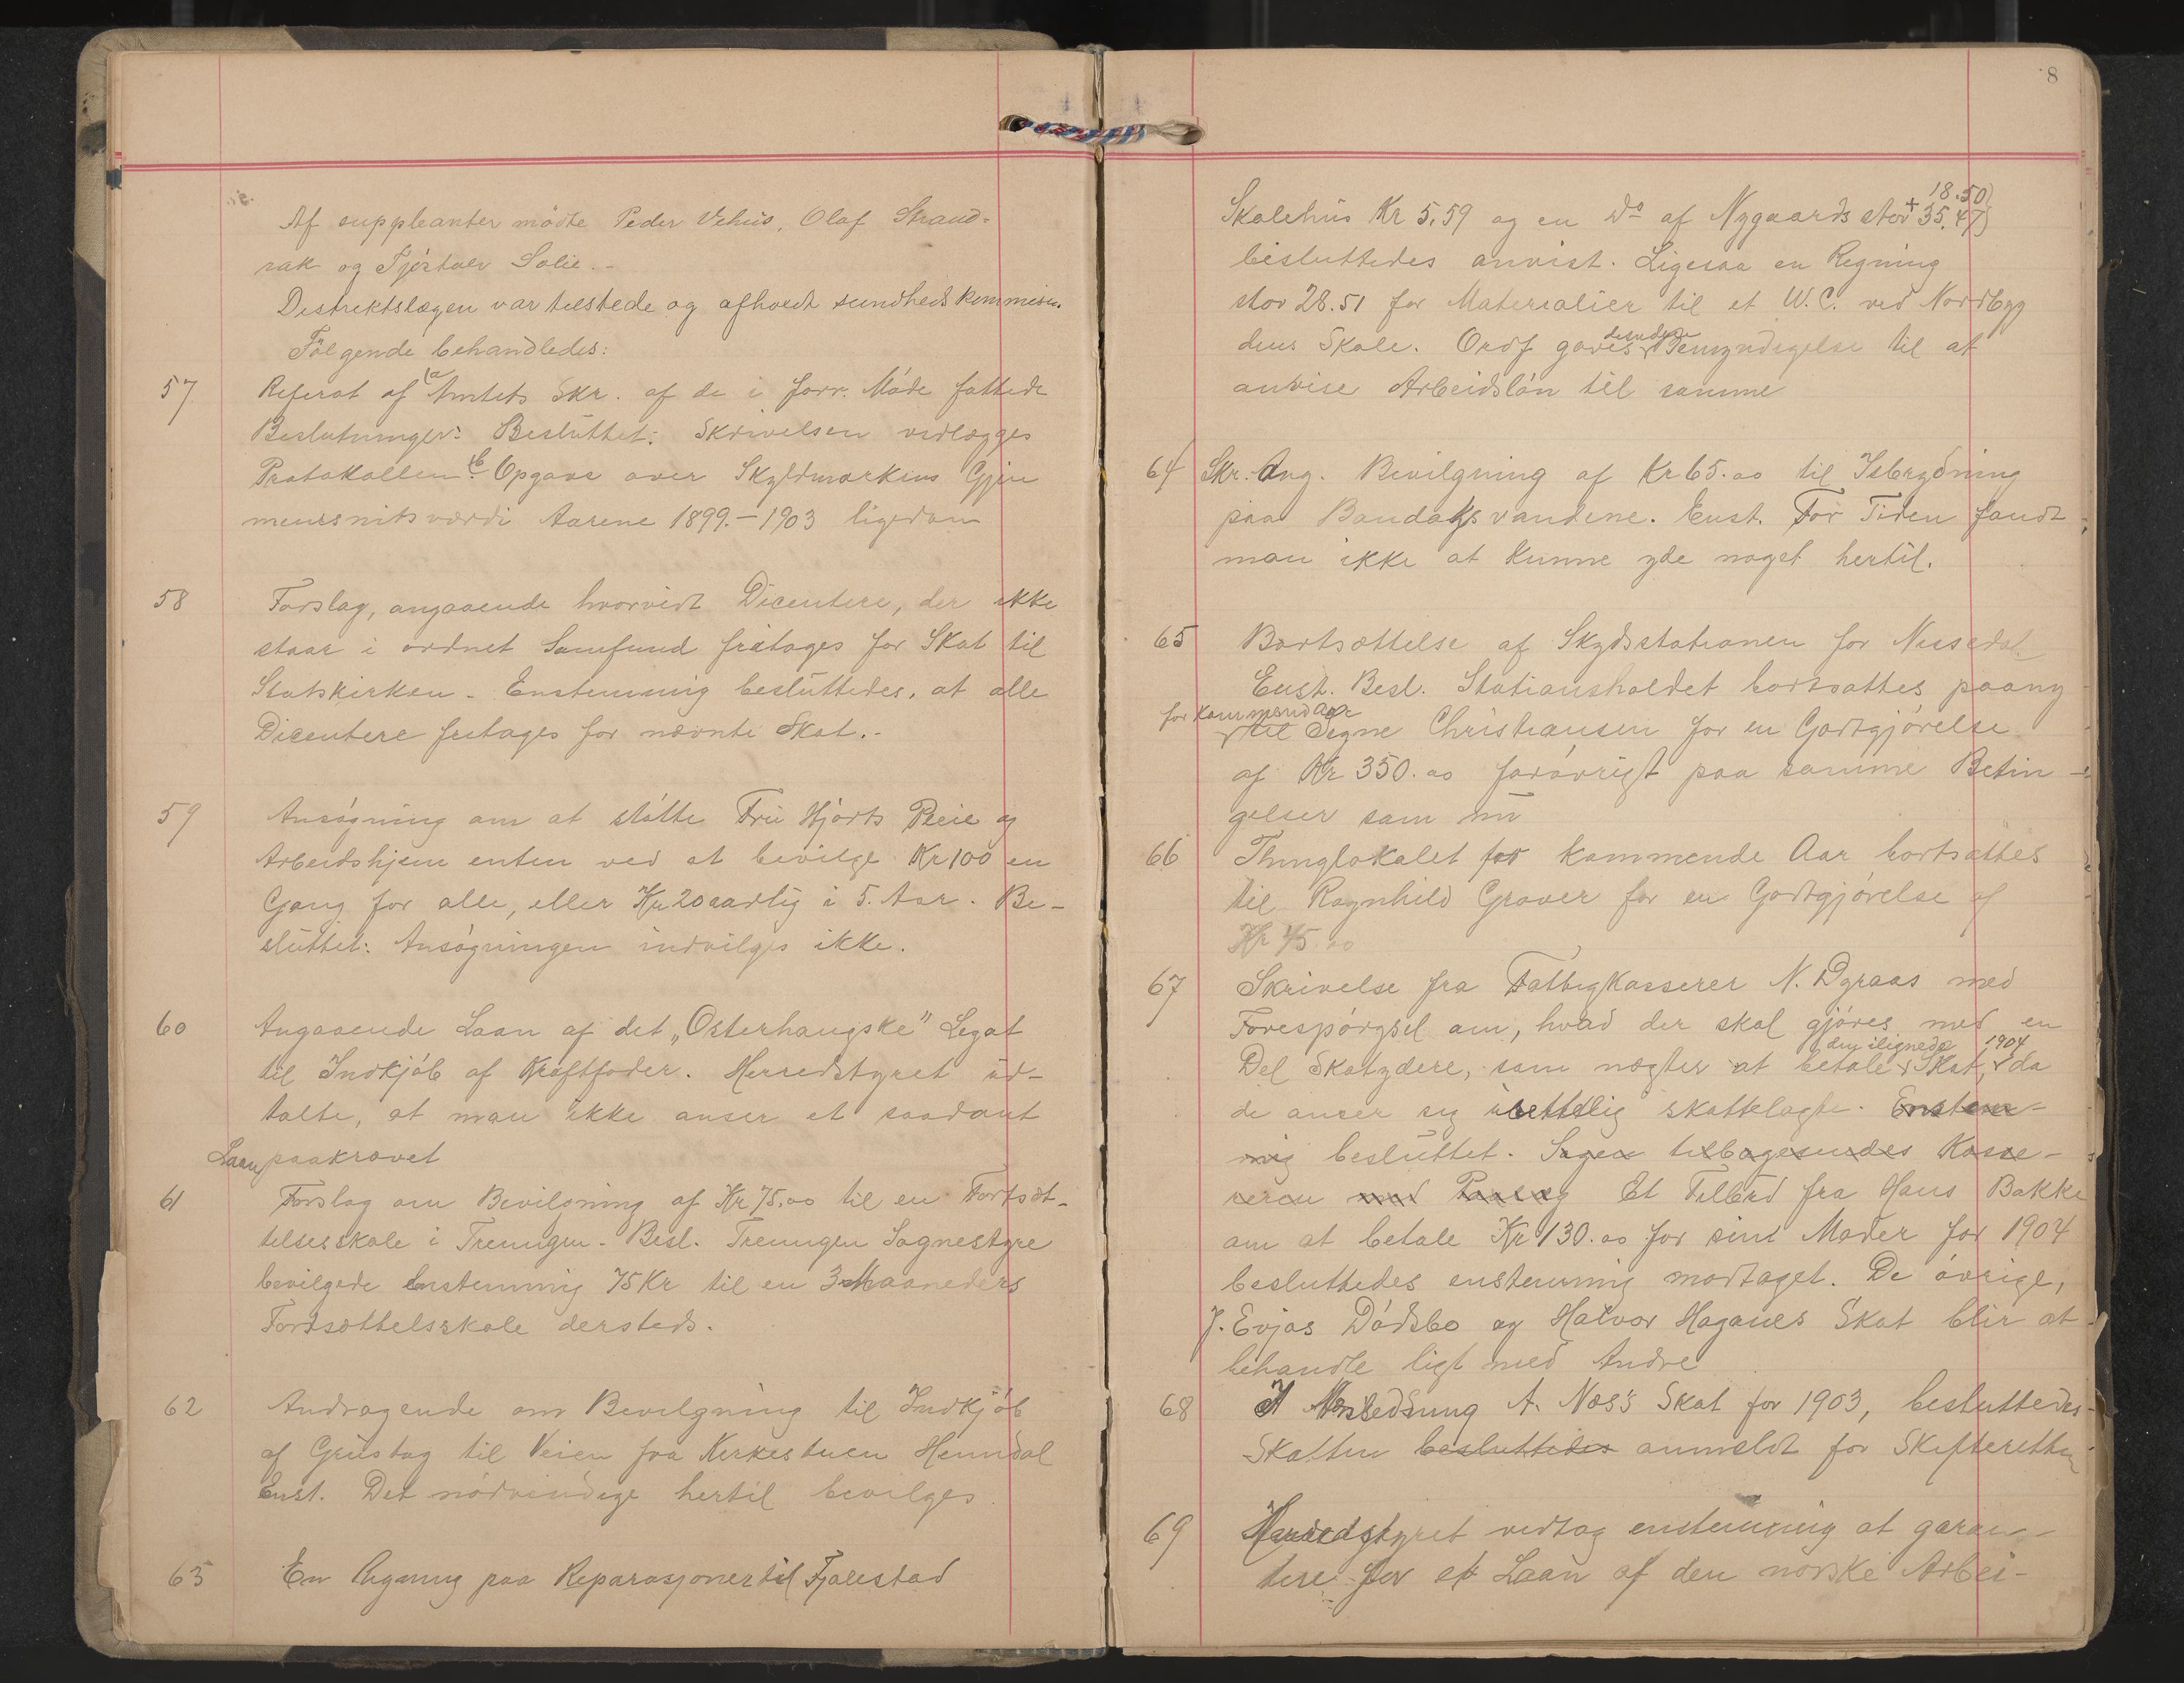 Af suppleanter mødte Peder Vehus, Olaf Straud-
rak og Tjøstolv Solie.-
Destriktslægen var tilstede og afholdt sundhedskommision.
Følgende behandledes:
57 Referat af (a Amtets Skr. af de i forr. Møde fattede
Beslutninger: Besluttet: Skrivelsen vedlægges
Protokollen. (b Opgave over Skyldmarkens Gjen
nemsnitsværdi Aarene 1899.-1903 ligedan
58 Forslag, angaaende hvorvidt Dicentere, der ikke
staar i ordnet Samfund fritages for Skat til
Statskirken. Enstemmig besluttedes, at alle
Dicentere fritages for nævnte Skat.-
59 Ansøgning om at støtte Fru Hjorts Pleie og
Arbeidshjem enten ved at bevilge Kr 100 en
Gang for alle, eller Kr 20 aarlig i 5. Aar. Be-
sluttet: Ansøgningen indvilges ikke.
60 Angaaende Laan af det „Osterhaugske" Legat
til Indkjøb af Kraftfoder. Herredstyret ud-
talte, at man ikke anser et saadant
Laan paakrævet
61 Forslag om Bevilgning af Kr 75,00 til en Fortsæt-
telsesskole i Treungen. Besl. Treungen Sognestyre
bevilgede Enstemmig 75 Kr til en 3 Maaneders
Fortsættelsskole dersteds.
62 Andragende om Bevilgning til Indkjøb
af Grustag til Veien fra Kirkestuen Henndal
Enst. Det nødvendige hertil bevilges.
63 En Regning paa Reparasjoner til Fjalestad
8
18.50
Skolehus Kr 5.59 og en Do af Nygaards stor + 35.47)
besluttedes anvist. Ligesaa en Regning
stor 28.51 for Materialier til et W.C. ved Nordbyg
dens Skole. Ordf gaves desuden Bemyndigelse til at
anvise Arbeidsløn til samme
64 Skr. Ang. Bevilgning af Kr 65.00 til Isbrydning
paa Bandaksvandene. Enst. For Tiden fandt
man ikke at kunne yde noget hertil.
65 Bortsættelse af Skydsstationen for Nissedal
Enst. Besl. Stationsholdet bortsattes paany
for kommende Aar
til Signe Christiansen for en Godtgjørelse
af Kr 350.00 forøvrigt paa samme Betin-
gelser som nu
66 Thinglokalet for kommende Aar bortsættes
til Ragnhild Graver for en Godtgjørelse af
Kr 45.00
67 Skrivelse fra Fattigkasserer N. Dyraas med
Forespørgsel om, hvad der skal gjøres med en
den ilignede 1904
Del Skatydere, som nægter at betale Skat, da
de anser sig urettelig skattelagte. Enstem-
mig besluttet. Sagen tilbagesendes Kasse-
reren med Paalæg Et Tilbud fra Hans Bakke
om at betale Kr 130.00 for sine Moder for 1904
besluttedes enstemmig modtaget. De øvrige,
J. Evjas Dødsbo og Halvor Haganes Skat blir at
behandle ligt med Andre
68 I Anledning A. Næs's Skat for 1903, besluttedes
Skatten besluttedes anmeldt for Skifteretten
69 Herredstyret vedtog enstemmig at garan-
tere for et Laan af den norske Arbei-